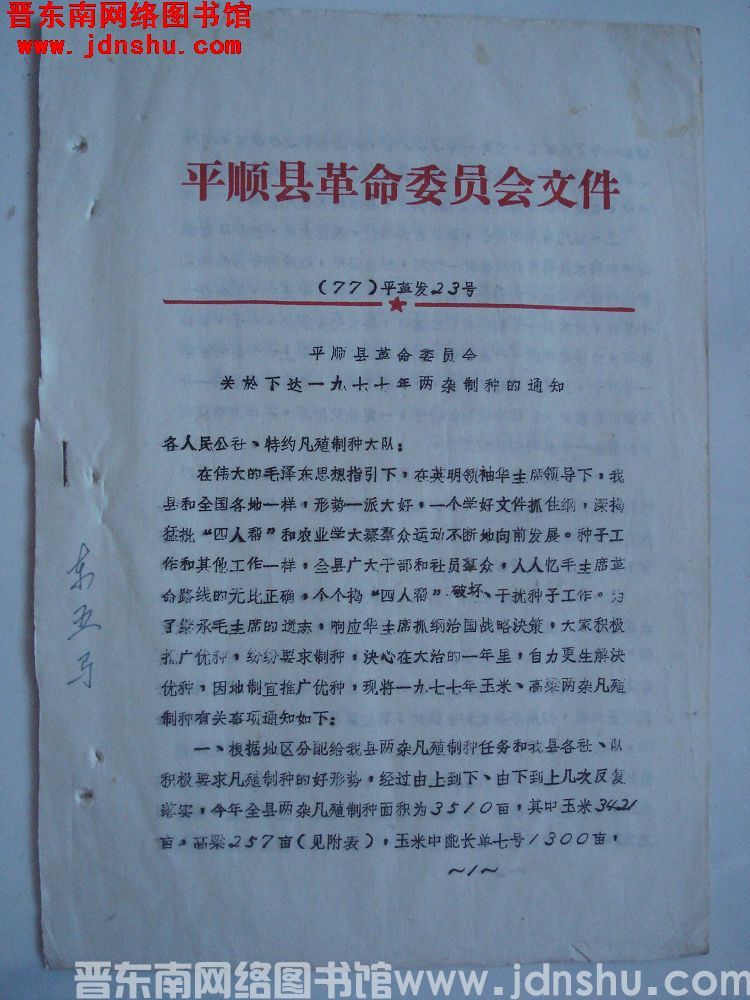 晋东南网络图书馆
www.jdnshu.com
平顺县革命委员会文件
(77)平革发23号
平顺县革命委员会
关於下达一九七七年两杂制种的通知
各人民公社、特约凡殖制种大队：
在伟大的毛泽东思想指引下，在英明领袖华主席领导下，我
县和全国各地一样，形势一派大好，一个学好文件抓住纲，深揭
猛批“四人帮”和农业学大寨群众运动不断地向前发展。种子工
作和其他工作一样，全县广大干部和社员群众，人人忆毛主席革
命路线的无比正确，个个揭“四人帮”破坏、干扰种子工作。为
了继承毛主席的遗志，响应华主席抓纲治国战略决策，大家积极
推广优种，纷纷要求制种，决心在大治的一年里，自力更生解决
优种，因地制宜推广优种，现将一九七七年玉米、高粱两杂凡殖
制种有关事项通知如下：
一、根据地区分配给我县两杂凡殖制种任务和我县各社、队
积极要求凡殖制种的好形势，经过由上到下、由下到上几次反复
落实，今年全县两杂凡殖制种面积为3510亩，其中玉米3421
亩，高粱257亩(见附表)，玉米中配长单七号1300亩，
～1～
东五号
晋东南网络图书馆www.jdnshu.com